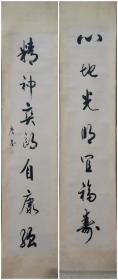 心地光明宜福壽
精神爽朗自康強